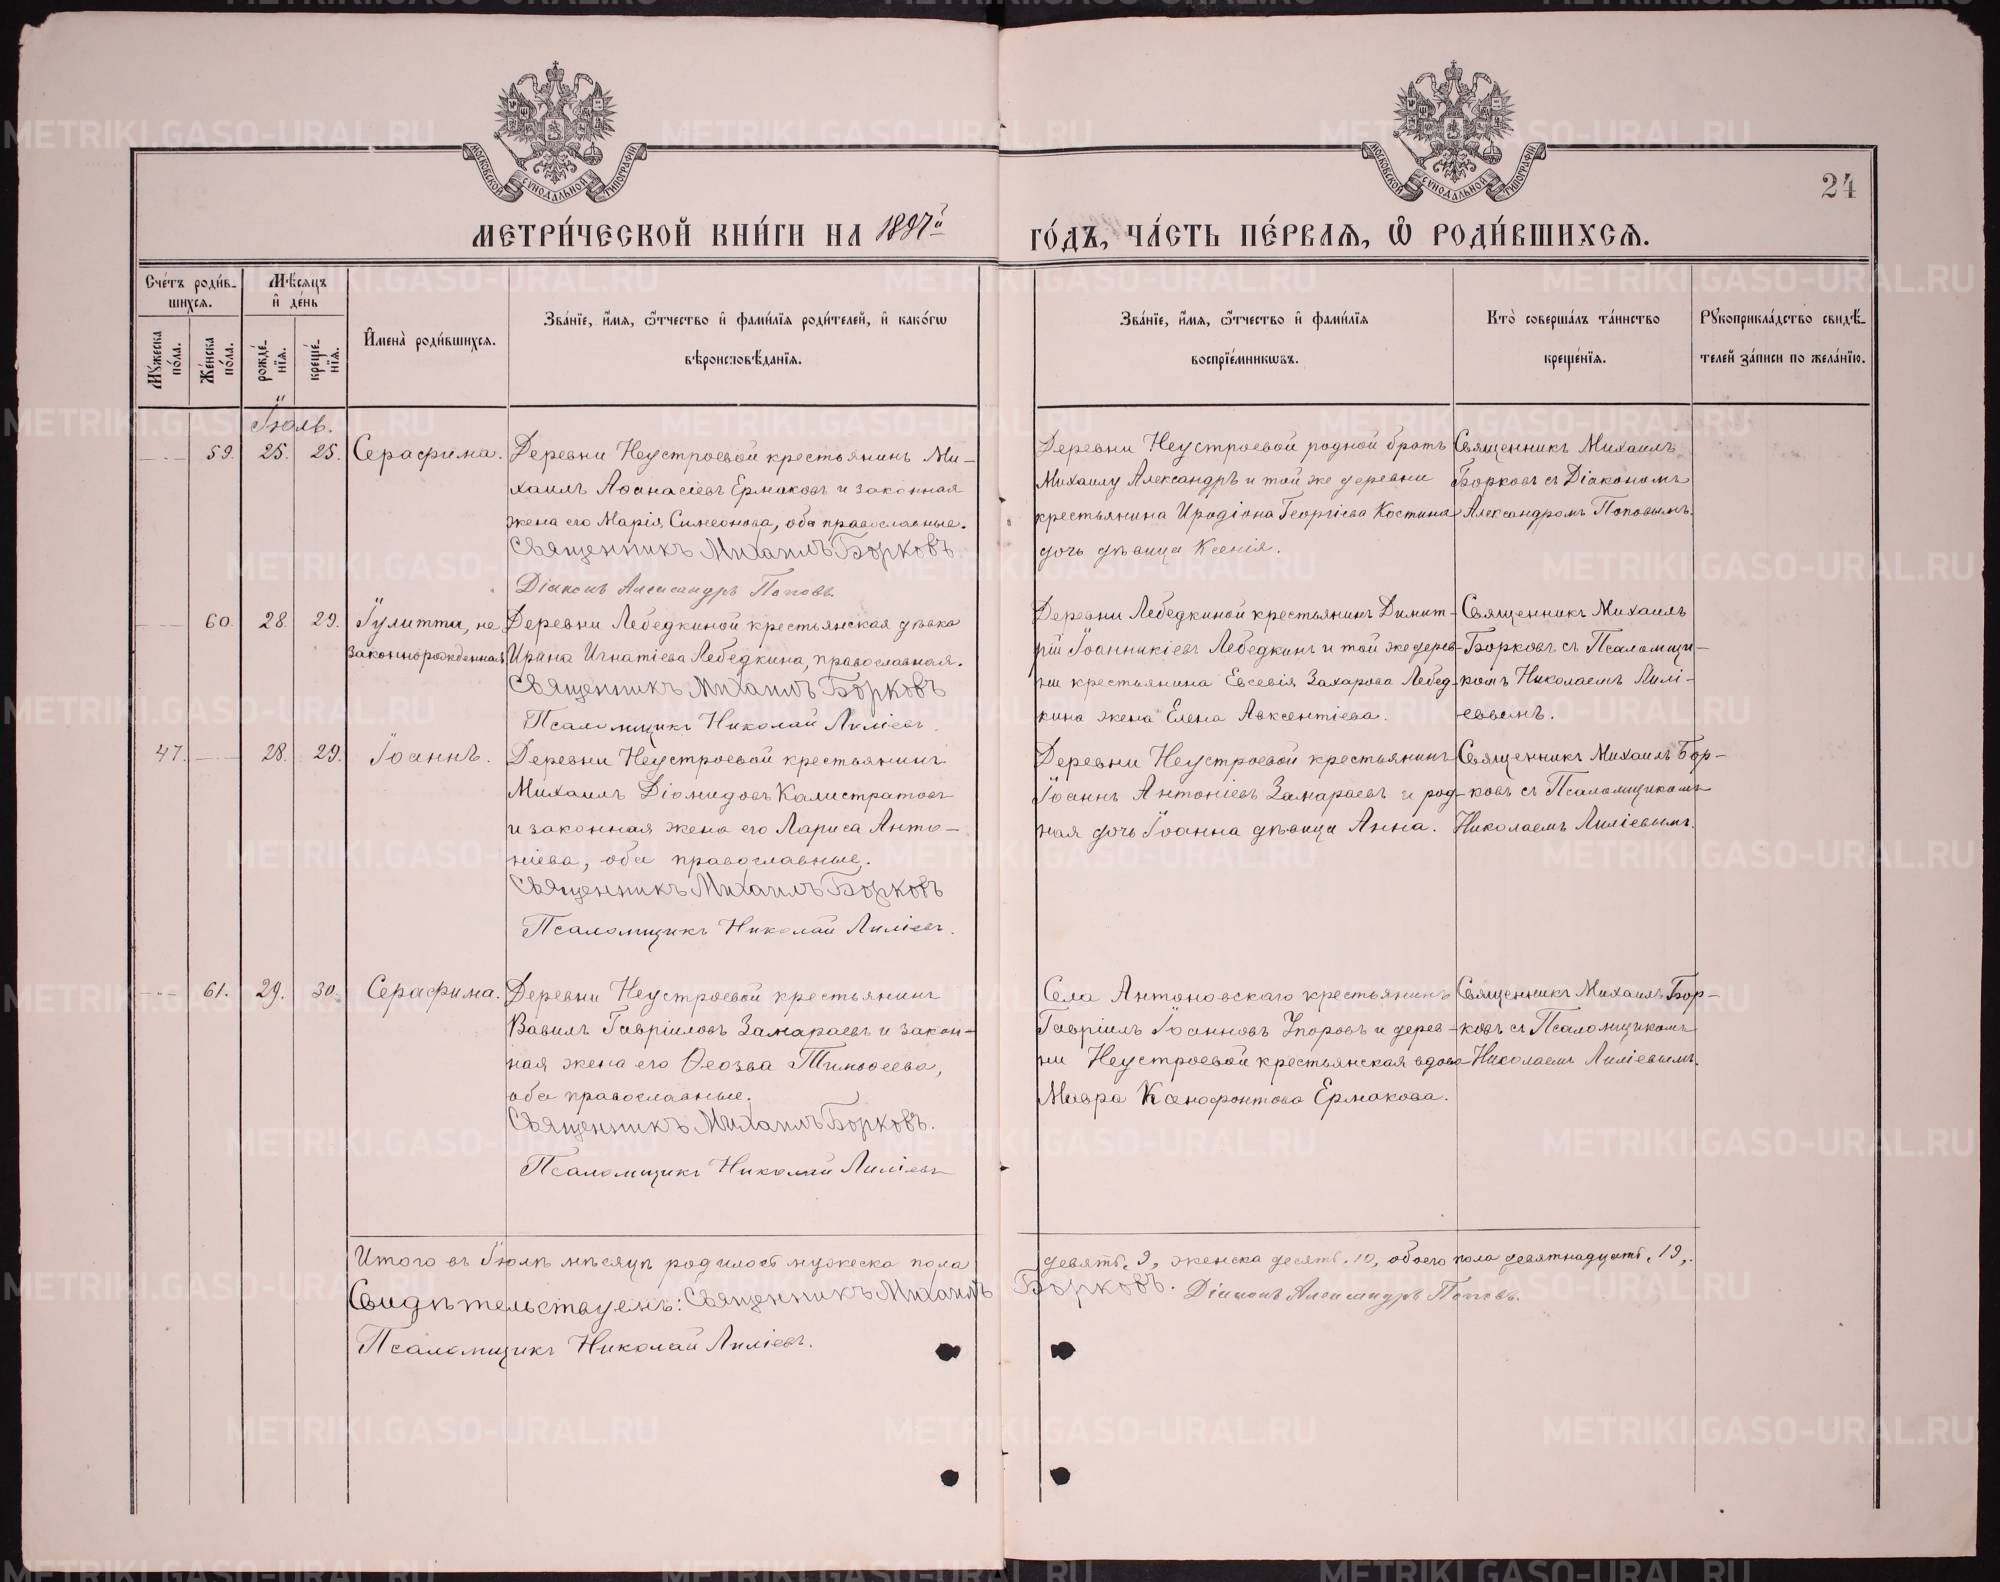 МОСКОВСКОЙ СѴНОДАЛЬНОЙ ТИПОГРАФІИ
МОСКОВСКОЙ СѴНОДАЛЬНОЙ ТИПОГРАФІИ
24
МЕТРИ́ЧЕСКОЙ КНИ́ГИ НА 1897й
ГО́ДЪ, ЧА́СТЬ ПЕ́РВАЯ, Ѡ҆ РОДИ́ВШИХСЯ.
Сче́тъ роди́в-
шихся.
Мѣ́сяцъ
и҆ де́нь
Му́жеска по́ла.
Же́нска по́ла.
рожде́-
нїя.
креще́-
нїя.
И҆мена̀ роди́вшихся.
Зва́нїе, и҆́мя, ѻ҆́тчество и҆ фами́лїя роди́телей, и҆ како́гѡ
вѣроисповѣ́данїя.
Зва́нїе, и҆́мя, ѻ҆́тчество и҆ фами́лїя
воспрїе́мникѡвъ.
Кто̀ соверша́лъ та́инство
креще́нїя.
Рꙋкоприкла́дство свидѣ́-
телей за́писи по жела́нїю.
Іюль.
59. 25. 25. Серафима.
Деревни Неустроевой крестьянинъ Ми-
хаилъ Аѳанасіевъ Ермаковъ и законная
жена его Марія Симеонова, оба православные.
Священникъ Михаилъ Борковъ.
Діаконъ Александръ Поповъ.
Деревни Неустроевой родной братъ
Михаилу Александръ и той же деревни
крестьянина Иродіона Георгіева Костина
дочь дѣвица Ксенія.
Священникъ Михаилъ
Борковъ съ Діакономъ
Александромъ Поповымъ.
60. 28. 29. Іулитта, не
законнорожденная.
Деревни Лебедкиной крестьянская дѣвка
Ирина Игнатіева Лебедкина, православная.
Священникъ Михаилъ Борковъ
Псаломщикъ Николай Лиліевъ.
Деревни Лебедкиной крестьянинъ Димит-
рій Іоанникіевъ Лебедкинъ и той же дерев-
ни крестьянина Евсевія Захарова Лебед-
кина жена Елена Авксентіева.
Священникъ Михаилъ
Борковъ съ Псаломщи-
комъ Николаемъ Лилі-
евымъ.
47. 28. 29. Іоаннъ.
Деревни Неустроевой крестьянинъ
Михаилъ Діомидовъ Калистратовъ
и законная жена его Лариса Анто-
ніева, оба православные.
Священникъ Михаилъ Борковъ
Псаломщикъ Николай Лиліевъ.
Деревни Неустроевой крестьянинъ
Іоаннъ Антоніевъ Замараевъ и род-
ная дочь Іоанна дѣвица Анна.
Священникъ Михаилъ Бор-
ковъ съ Псаломщикомъ
Николаемъ Лиліевымъ.
61. 29. 30. Серафима.
Деревни Неустроевой крестьянинъ
Вавилъ Гавріиловъ Замараевъ и закон-
ная жена его Ѳеозва Тимоѳеева,
оба православные.
Священникъ Михаилъ Борковъ.
Псаломщикъ Николай Лиліевъ
Села Антоновскаго крестьянинъ
Гавріилъ Іоанновъ Упоровъ и дерев-
ни Неустроевой крестьянская вдова
Мавра Ксенофонтова Ермакова.
Священникъ Михаилъ Бор-
ковъ съ Псаломщикомъ
Николаемъ Лиліевымъ.
Итого въ Іюлѣ мѣсяцѣ родилось мужеска пола
девять, 9, женска десять, 10, обоего пола девятнадцать, 19,.
Свидѣтельствуемъ: Священникъ Михаилъ Борковъ. Діаконъ Александръ Поповъ.
Псаломщикъ Николай Лиліевъ.